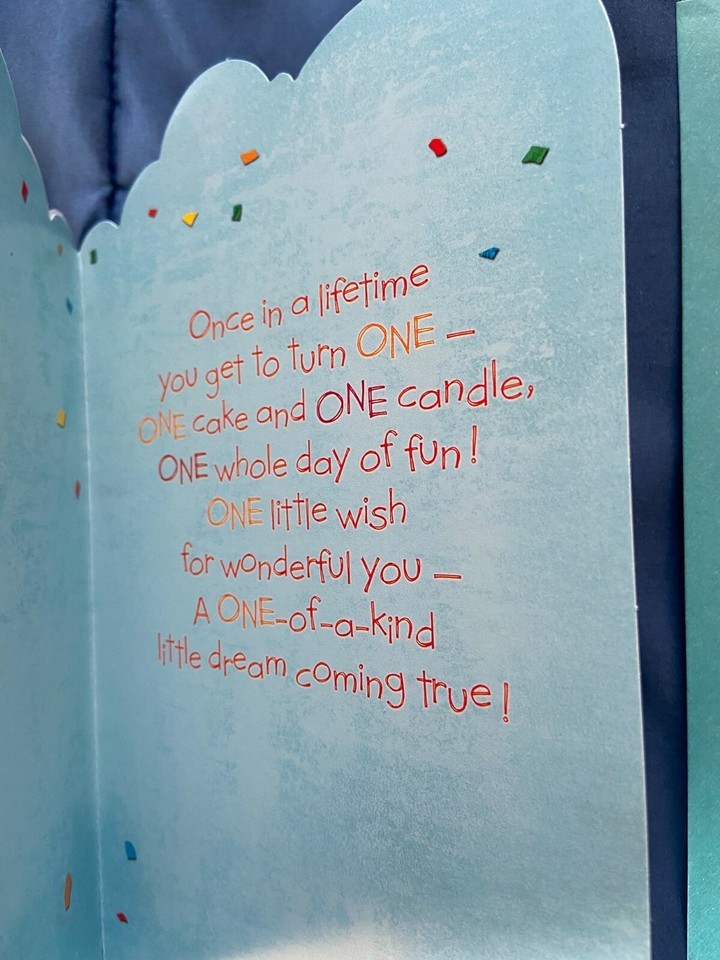 Once in a lifetime
you get to turn ONE –
ONE cake and ONE candle,
ONE whole day of fun!
ONE little wish
for wonderful you –
A ONE-of-a-kind
little dream coming true!